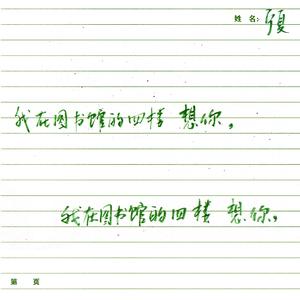 姓名:夏
我在图书馆的四楼 想你,
我在图书馆的四楼 想你,
第 页